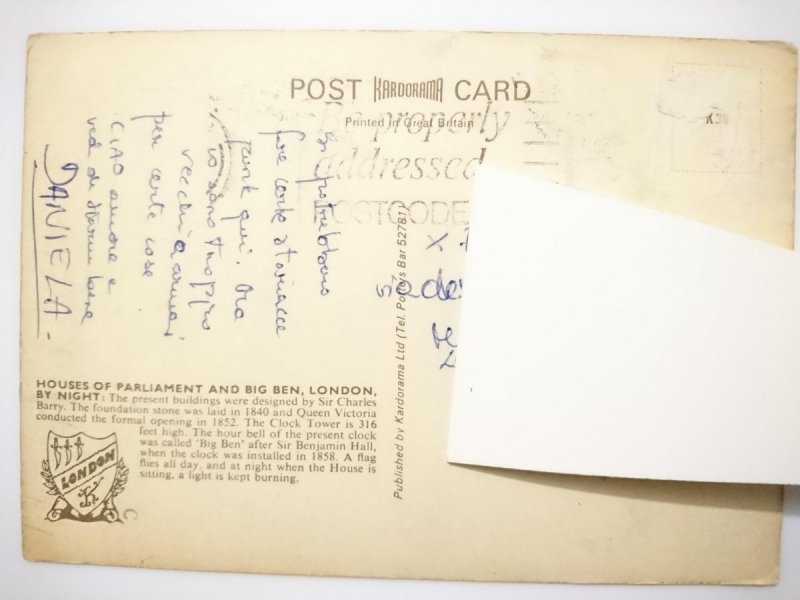 POST KARDORAMA CARD
Printed in Great Britain
K36
Be properly
addressed
POSTCODE
Si potrebbero
fare certe
qui! Ora
io sono troppo
vecchia ormai
per certe cose
CIAO amore e
vedi di starmi bene
DANIELA-
Published by Kardorama Ltd (Tel. Potters Bar 52781)
HOUSES OF PARLIAMENT AND BIG BEN, LONDON,
BY NIGHT: The present buildings were designed by Sir Charles
Barry. The foundation stone was laid in 1840 and Queen Victoria
conducted the formal opening in 1852. The Clock Tower is 316
feet high. The hour bell of the present clock
was called 'Big Ben' after Sir Benjamin Hall,
when the clock was installed in 1858. A flag
flies all day, and at night when the House is
sitting, a light is kept burning.
LONDON